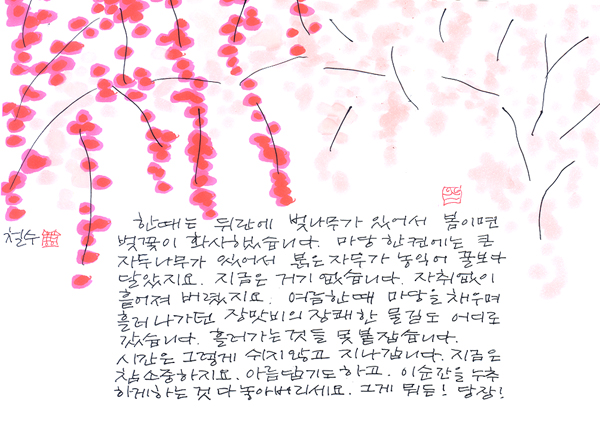 한때는 뒤란에 벚나무가 있어서 봄이면
벚꽃이 화사했습니다. 마당 한켠에는 큰
자두나무가 있어서 붉은 자두가 농익어 꿀보다
달았지요. 지금은 거기 없습니다. 자취없이
흩어져 버렸지요. 여름한때 마당을 채우며
흘러 나가던 장맛비의 장쾌한 물길도 어디로
갔습니다. 흘러가는 것들 못 붙잡습니다.
시간은 그렇게 쉬지 않고 지나갑니다. 지금은
참 소중하지요. 아름답기도 하고. 이순간을 누추
하게하는 것 다 놓아버리세요. 그게 뭐든! 당장!
철수